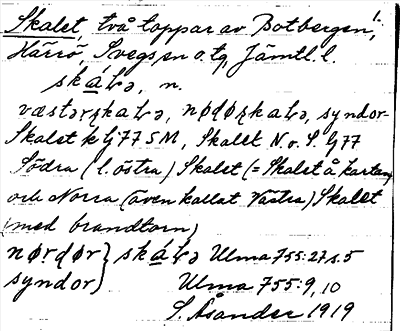 Skalet, två toppar av Botbergen,
Härrö, Svegs sn o. tg, Jämtl. l.
skáLə, n.
væstərskaLə, nørdørskaLə, syndor-
Skalet k Gj77 SM, Skalet N. o. S. Gj77
Södra (l. östra) Skalet (= Skalet å kartan)
och Norra (även kallat Västra) Skalet
(med brandtorn)
nørdør } skáLə Ulma 755:27 s.5
syndor } Ulma 755:9, 10
S. Åsander 1919